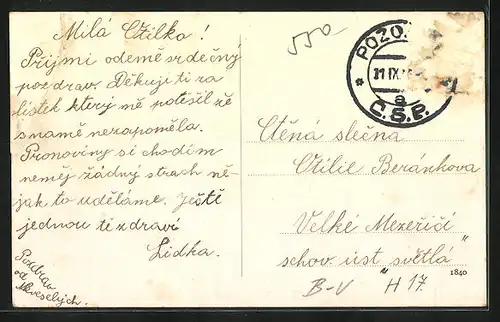 Milá Otilko!
Prijmi odemě srdečný
pozdrav. Děkuji ti za
lístek který mě potěšil žě
s namě nezapoměla.
Pro noviny si chodím
neměj žádný strach ně-
jak to uděláme. Ještě
jednou tě zdraví
Lidka.
Pozdrav
od
Veselých.
550
POZO
11 IX
a
Č.S.P.
Ctěná slečna
Otilie Beránkova
Velké Mezeřičí
schov. úst "světlá"
1840
B-V H 17.